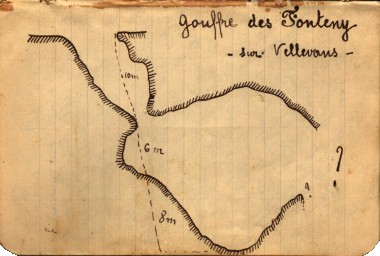 Gouffre des Fonteny
- sur Vellevans -
10m
6 m
?
?
8m